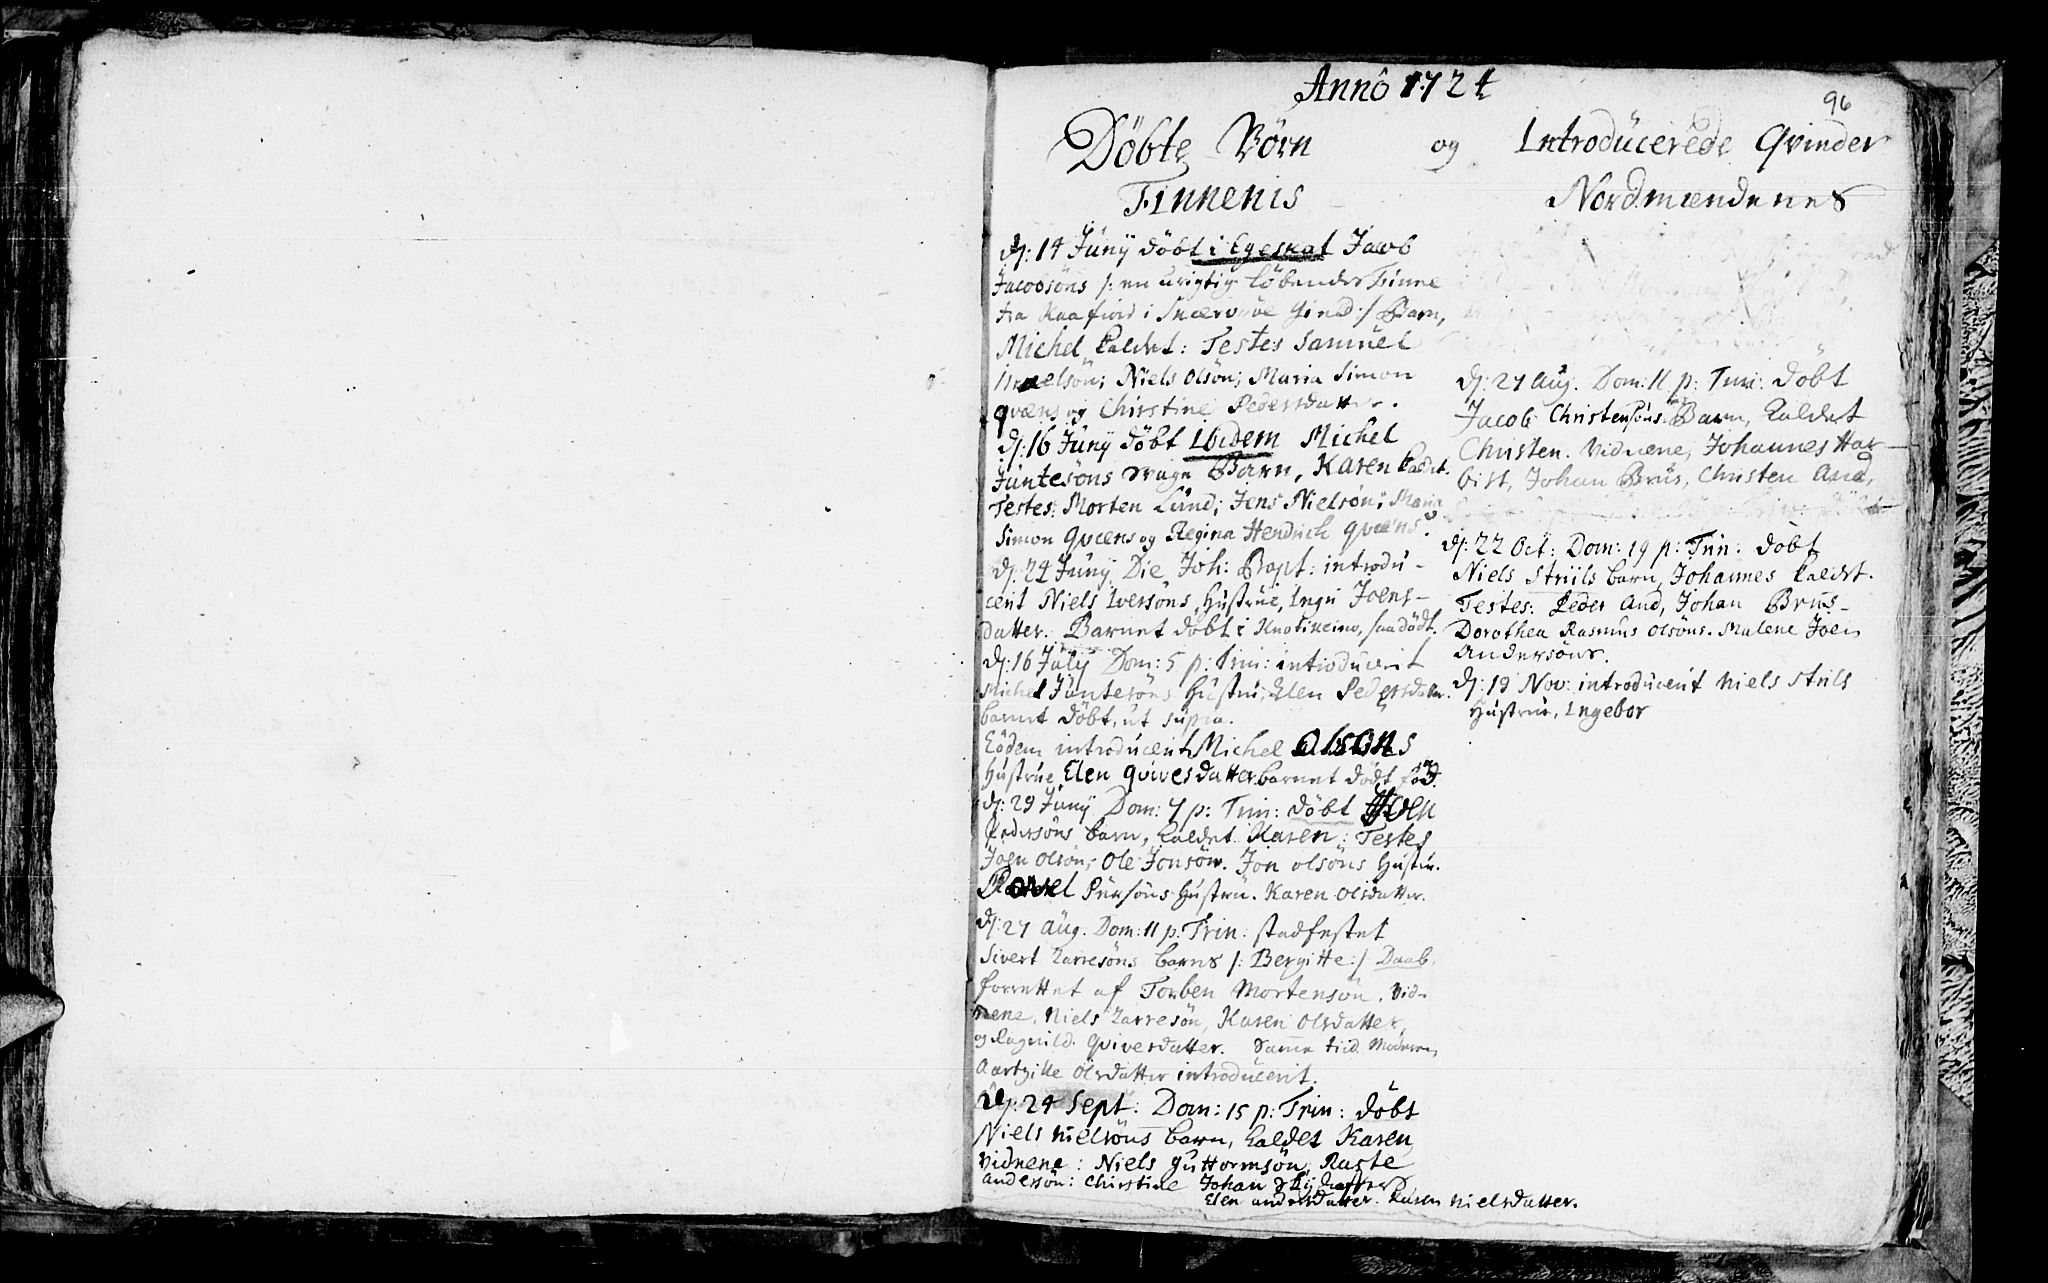 Annô 1724
96
Döbte Börn og Introducerede Qvinder
Finnenis
dj: 14 Junÿ döbt i Egeskal Jacob
Jacobsöns /: en urigtig löbendes Finne
fra Kaafiord i Skiervöe Gield :/ Barn,
Michel kaldet: Testes Samuel
Nielsön; Niels Olsön; Maria Simon
qvæns og Chirstine Pedersdatter.
dj: 16 Junÿ döbt Ibidem Michel
Juntesöns svage Barn, Karen kaldet.
Testes: Morten Lund; Jens Nielsön; Maria
Simon Qvæns og Regina Hendrich qvæns.
dj: 24 Junÿ Die Joh: Bapt: introdu-
cerit Niels Iversöns Hustrue, Ingri Joens-
datter. Barnet döbt i Knotikeino, saa dödt.
dj: 16 July Dom: 5 p: Trin: introducerit
Michel Juntesöns Hustru, Elen Pedersdatter.
barnet döbt, ut supra.
Eôdem introducerit Michel Olsöns
Hustrue Elen Qvivesdatter barnet dödt född.
dj: 29 Junÿ Dom: 7 p: Trin: döbt Joen
Pedersöns barn, kaldet Karen: Testes
Joen Olsön; Ole Jonsön. Jon olsöns Hustru.
Povel Persöns Hustru. Karen Olsdatter.
dj: 27 Aug. Dom: 11 p: Trin: stadfestet
Sivert Larresöns barns /: Bergitte :/ Daab
forrettet af Torben Mortensön. Vid-
nene, Niels Larresön, Karen Olsdatter,
og Ragnild Qvivesdatter. Samme tiid Moderen,
Olsdatter introducerit.
dj: 24 Sept: Dom: 15 p: Trin: döbt
Niels Nielsöns barn, kaldet Karen,
Vidnene: Niels Guttormsön, Raste
Andersön: Chirstine Johan
Elen andersdatter. Karen Nielsdatter.
Nordmændenes
dj: 27 Aug. Dom: 11 p: Trin: döbt
Jacob Christensöns Barn, kaldet
Christen. Vidnene, Johannes Har-
bitt, Johan Brüs, Christen And,
dj: 22 Oct: Dom: 19 p: Trin: döbt
Niels Striils barn, Johannes kaldet.
Testes: Peder And, Johan Brus-
Dorothea Rasmus Olsöns. Malene Joen
Andersöns.
dj: 19 Nov: introducerit Niels Striils
Hustrue, Ingebor